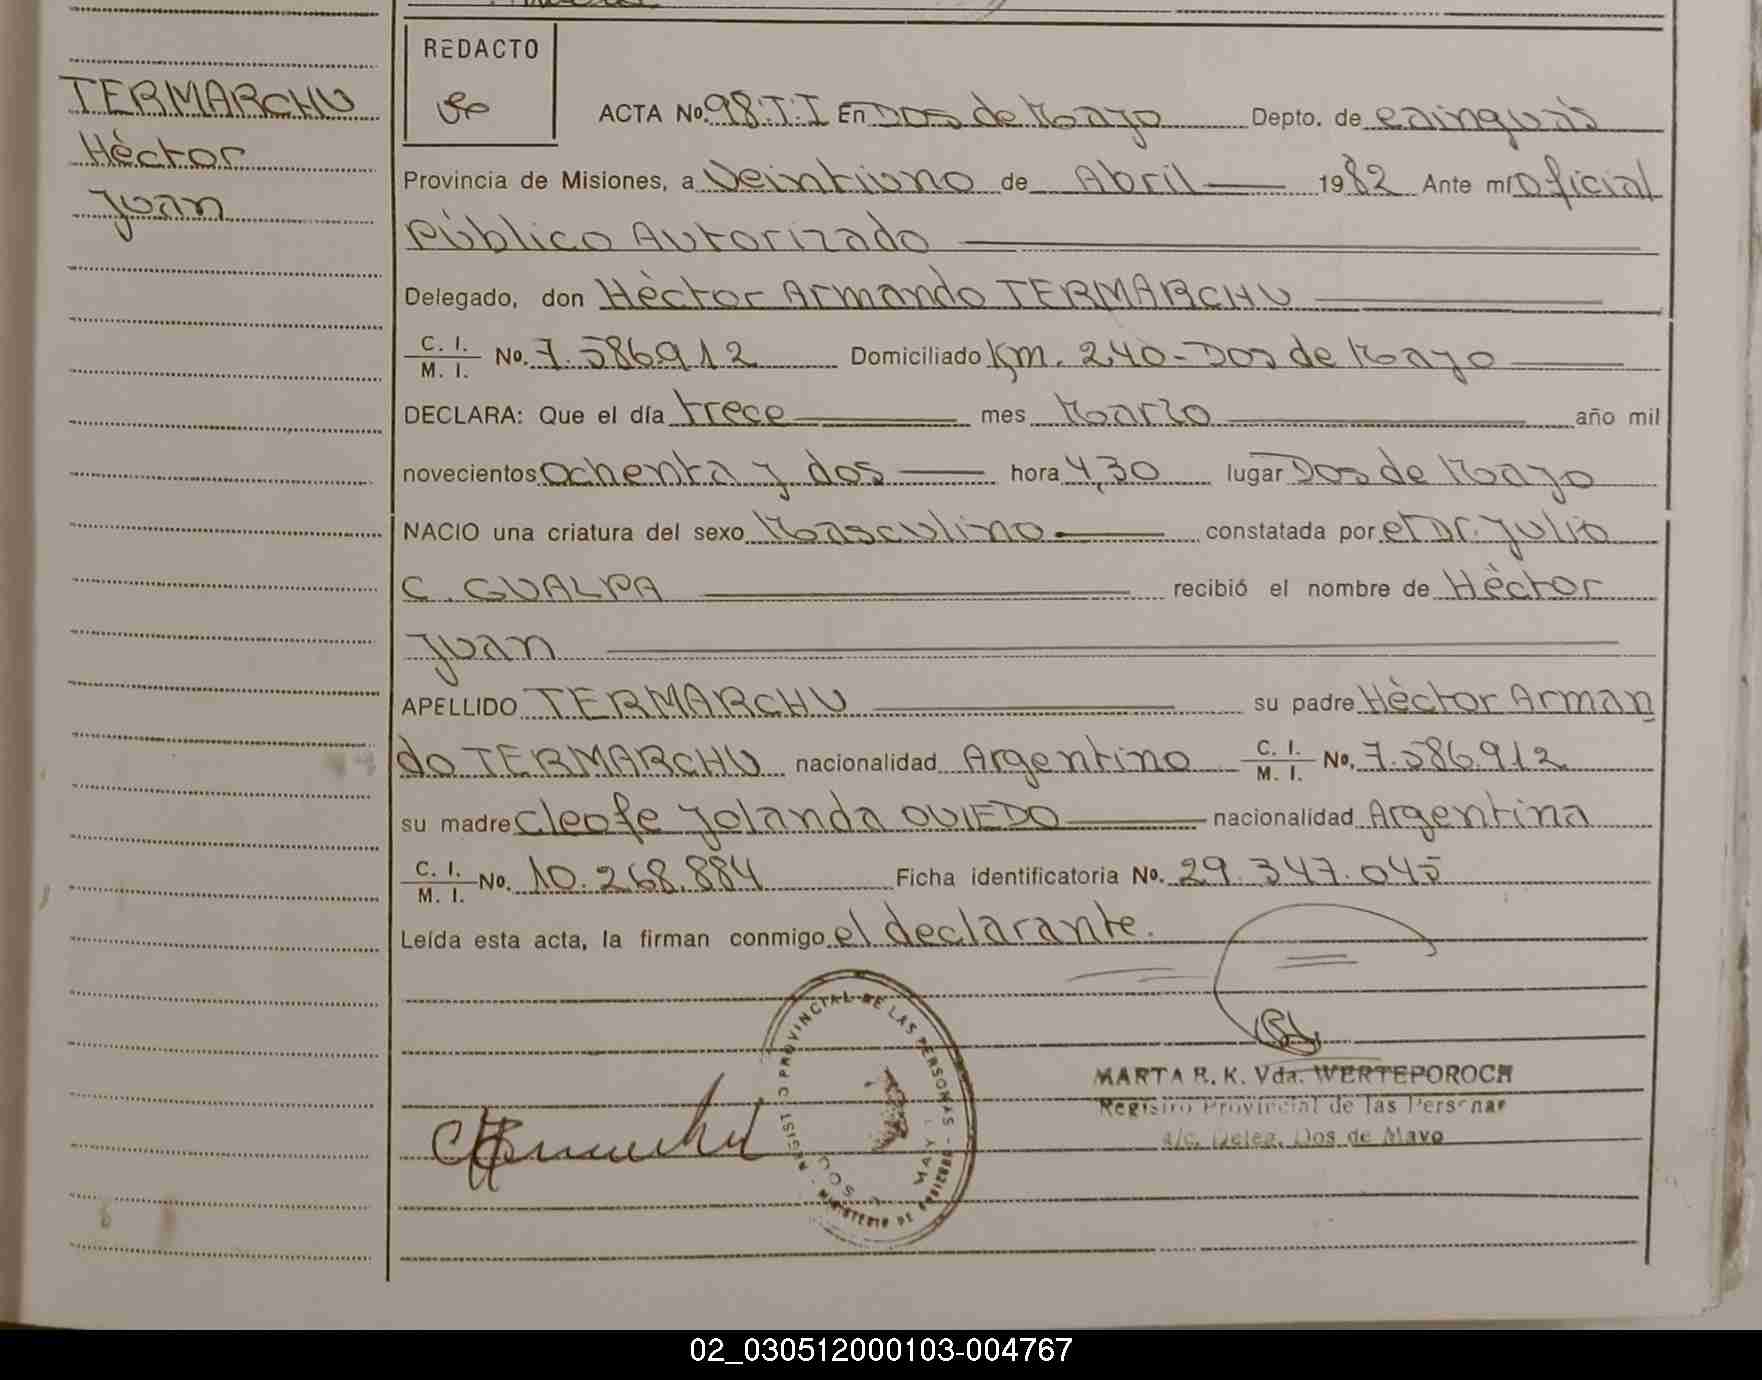 TERMARCHU
Hèctor
Juan
REDACTO
ACTA No. 98:T:I En Dos de Mayo Depto. de cainguàs
Provincia de Misiones, a Veintiuno de Abril 1982 Ante mi oficial
Pùblico Autorizado
Delegado, don Hèctor Armando TERMARCHU
C. I.
M. I. No. 7.586.912 Domiciliado Km. 240-Dos de Mayo
DECLARA: Que el día trece mes Marzo año mil
novecientos ochenta y dos hora 4,30 lugar Dos de Mayo
NACIO una criatura del sexo Masculino constatada por el Dr. Julio
C. GUALPA recibió el nombre de Hèctor
Juan
APELLIDO TERMARCHU su padre Hèctor Arman
do TERMARCHU nacionalidad Argentino C. I.
M. I. No. 7.586.912
su madre cleofe Jolanda OVIEDO nacionalidad Argentina
C. I.
M. I. No. 10.268.884 Ficha identificatoria No. 29.347.045
Leída esta acta, la firman conmigo el declarante.
PROVINCIAL DE LAS PERSONAS
MINISTERIO DE GOBIERNO
MARTA R. K. Vda. WERTEPOROCH
Registro Provincial de las Personas
a/c. Deleg. Dos de Mayo
02_030512000103-004767